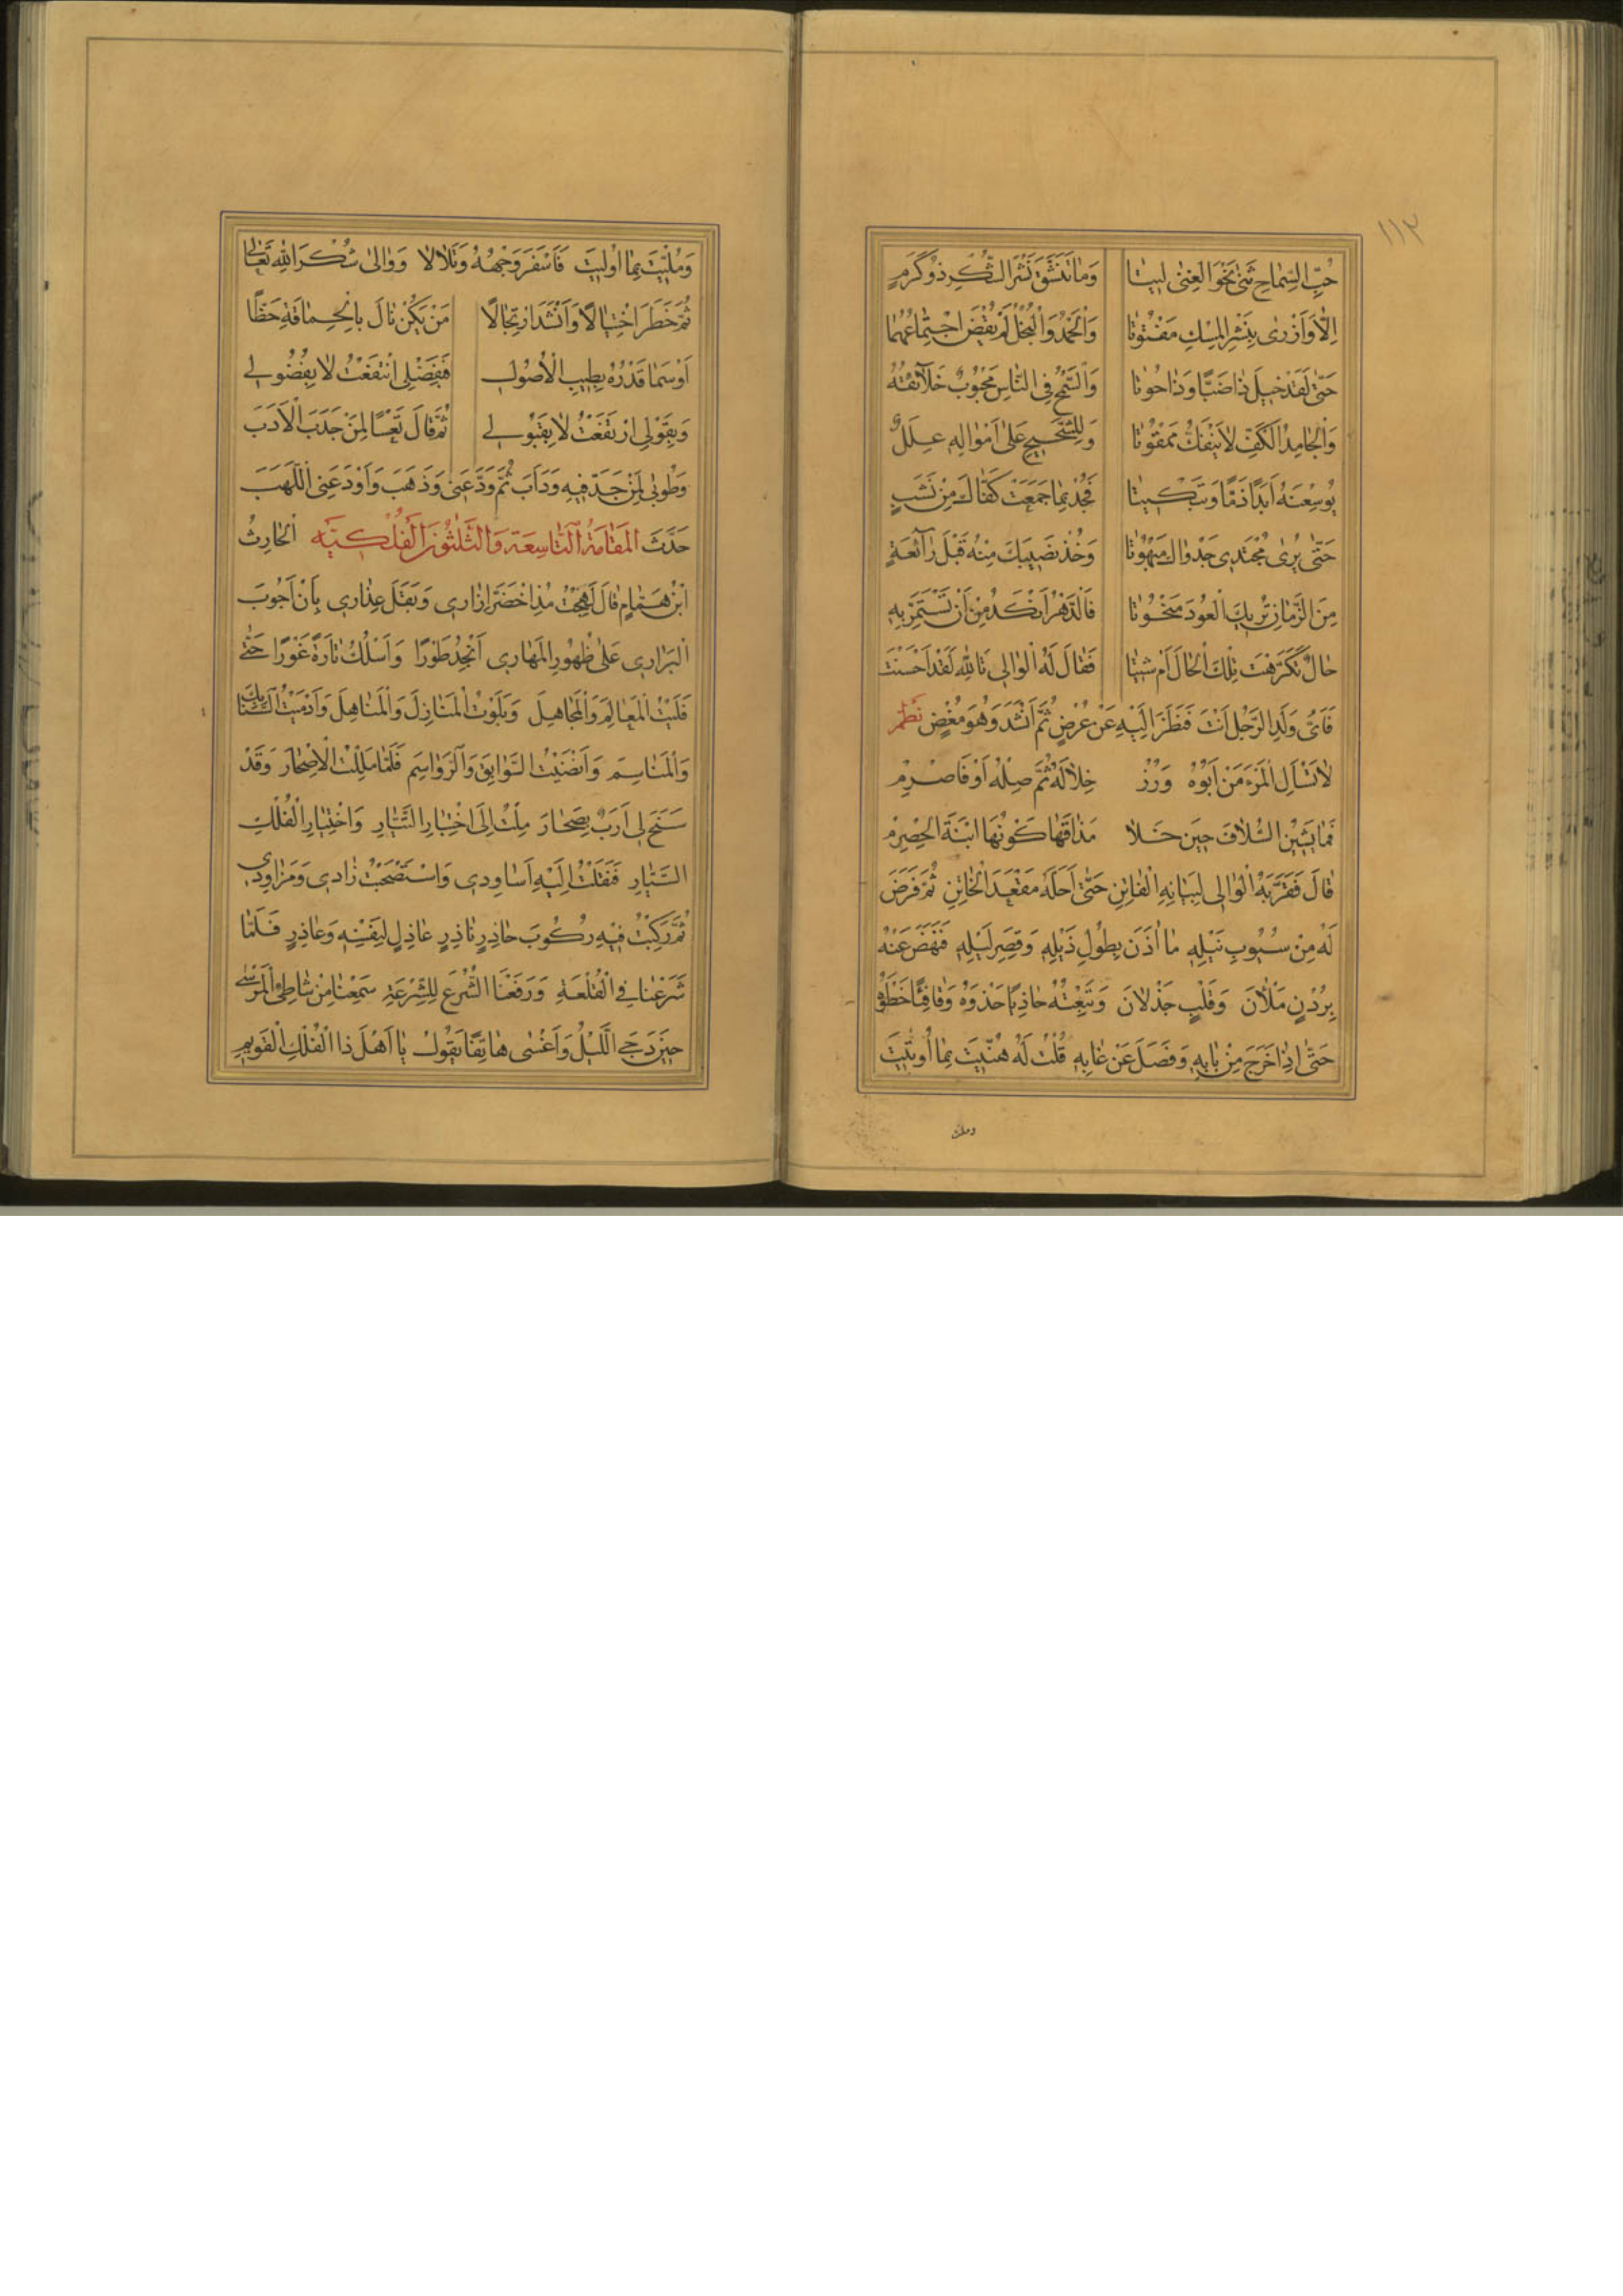 ١١٢
حُبِّ السَّمَاحِ ثَنٰى نَحْوَ الْغِنٰى لِيْتَا وَمَا تَنَشَّقَ نَشْرَ الشُّكْرِ ذُو كَرَمٍ
اِلَّا وَاَزْرٰى بِنَشْرِ الْمِسْكِ مَفْتُوتَا وَالْحَمْدُ وَالْبُخْلُ لَمْ يُقْضَ اجْتِمَاعُهُمَا
حَتّٰى لَقَدْ خِيلَ ذَا ضَبًّا وَذَا حُوتَا وَالسَّمْحُ فِي النَّاسِ مَحْبُوبٌ خَلَائِقُهُ
وَالْجَامِدُ الْكَفِّ لَا يَنْفَكُّ مَمْقُوتَا وَلِلشَّحِيحِ عَلٰى اَمْوَالِهِ عِلَلٌ
يُوسِعْنَهُ اَبَدًا ذَمًّا وَتَبْكِيتَا فَجُدْ بِمَا جَمَعَتْ كَفَّاكَ مِنْ نَشَبٍ
حَتّٰى يُرٰى مُجْتَدِي جَدْوَاكَ مَبْهُوتَا وَخُذْ نَصِيبَكَ مِنْهُ قَبْلَ رَائِعَةٍ
مِنَ الزَّمَانِ تُرِيكَ الْعُودَ مَنْحُوتَا فَالدَّهْرُ اَنْكَدُ مِنْ اَنْ تَسْتَمِرَّ بِهِ
حَالٌ تَكَرَّهْتَ تِلْكَ الْحَالَ اَمْ شِيتَا فَقَالَ لَهُ الْوَالِي تَاللّٰهِ لَقَدْ اَحْسَنْتَ
فَاَيُّ وَلَدِ الرَّجُلِ اَنْتَ فَنَظَرَ اِلَيْهِ عَنْ عُرْضٍ ثُمَّ اَنْشَدَ وَهُوَ مُغْضٍ نظم
لَا تَسْاَلِ الْمَرْءَ مَنْ اَبُوهُ وَرُزْ خِلَالَهُ ثُمَّ صِلْهُ اَوْ فَاصْرِمْ
فَمَا يَشِيْنُ السُّلَافَ حِينَ حَلَا مَذَاقُهَا كَوْنُهَا ابْنَةَ الْحِصْرِمْ
قَالَ فَقَرَّبَهُ الْوَالِي لِبَيَانِهِ الْفَاتِنِ حَتّٰى اَحَلَّهُ مَقْعَدَ الْخَاتِنِ ثُمَّ فَرَضَ
لَهُ مِنْ سُيُوبِ نَيْلِهِ مَا اٰذَنَ بِطُولِ ذَيْلِهِ وَقِصَرِ لَيْلِهِ فَنَهَضَ عَنْهُ
بِرُدْنٍ مَلْاٰنَ وَقَلْبٍ جَذْلَانَ وَتَبِعْتُهُ حَاذِيًا حَذْوَهُ وَقَافِيًا خَطْوَهُ
حَتّٰى اِذَا خَرَجَ مِنْ بَابِهِ وَفَصَلَ عَنْ غَابِهِ قُلْتُ لَهُ هُنِّيتَ بِمَا اُوتِيتَ
وملئ
وَمُلِّيتَ بِمَا اُولِيتَ فَاَسْفَرَ وَجْهُهُ وَتَلَالَا وَوَالٰى شُكْرَ اللّٰهِ تَعَالٰى
ثُمَّ خَطَرَ اخْتِيَالًا وَاَنْشَدَ ارْتِجَالًا مَنْ يَكُنْ نَالَ بِالْحَمَاقَةِ حَظًّا
اَوْ سَمَا قَدْرُهُ بِطِيبِ الْاُصُولِ فَبِفَضْلِي انْتَفَعْتُ لَا بِفُضُولِي
وَبِقَوْلِي ارْتَفَعْتُ لَا بِقُيُولِي ثُمَّ قَالَ تَعْسًا لِمَنْ جَدَبَ الْاَدَبَ
وَطُوبٰى لِمَنْ جَدَّ فِيهِ وَدَاَبَ ثُمَّ وَدَّعَنِي وَذَهَبَ وَاَوْدَعَنِي اللَّهَبَ
حَدَّثَ الْمَقَامَةُ التَّاسِعَةُ وَالثَّلٰثُونَ الْفُلْكِيَّه الْحَارِثُ
ابْنُ هَمَّامٍ قَالَ لَهِجْتُ مُذِ اخْضَرَّ اِزَارِي وَبَقَلَ عِذَارِي بِاَنْ اَجُوبَ
الْبَرَارِي عَلٰى ظُهُورِ الْمَهَارِي اُنْجِدُ طَوْرًا وَاَسْلُكُ تَارَةً غَوْرًا حَتّٰى
فَلَيْتُ الْمَعَالِمَ وَالْمَجَاهِلَ وَبَلَوْتُ الْمَنَازِلَ وَالْمَنَاهِلَ وَاَدْمَيْتُ السَّنَابِكَ
وَالْمَنَاسِمَ وَاَنْضَيْتُ السَّوَابِقَ وَالرَّوَاسِمَ فَلَمَّا مَلِلْتُ الْاِصْحَارَ وَقَدْ
سَنَحَ لِي اَرَبٌ بِصُحَارَ مِلْتُ اِلَى اخْتِيَارِ التَّيَّارِ وَاخْتِيَارِ الْفُلْكِ
السَّيَّارِ فَنَقَلْتُ اِلَيْهِ اَسَاوِدِي وَاسْتَصْحَبْتُ زَادِي وَمَزَاوِدِي
ثُمَّ رَكِبْتُ فِيهِ رُكُوبَ حَاذِرٍ نَاذِرٍ عَاذِلٍ لِنَفْسِهِ وَعَاذِرٍ فَلَمَّا
شَرَعْنَا فِي الْقُلْعَةِ وَرَفَعْنَا الشُّرُعَ لِلسُّرْعَةِ سَمِعْنَا مِنْ شَاطِئِ الْمَرْسٰى
حِينَ دَجَى اللَّيْلُ وَاَغْسٰى هَاتِفًا يَقُولُ يَا اَهْلَ ذَا الْفُلْكِ الْقَوِيمِ